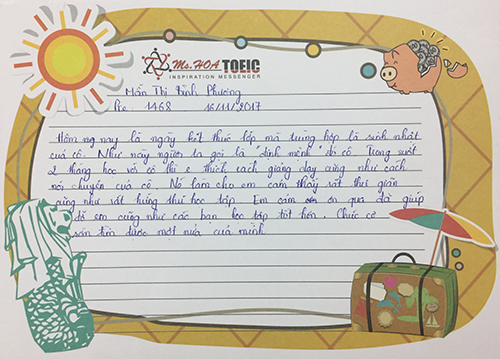 Ms. HOA TOEIC
INSPIRATION MESSENGER
Mẫn Thị Bình Phương
Pre 1468 16/11/2017
Hôm nay là ngày kết thúc lớp mà trùng hợp là sinh nhật
của cô. Như này người ta gọi là "định mệnh" đó cô. Trong suốt
2 tháng học với cô thì e thích cách giảng dạy cũng như cách
nói chuyện của cô. Nó làm cho em cảm thấy rất thư giãn
cũng như rất hứng thú học tập. Em cảm ơn cô qua đã giúp
đỡ em cũng như các bạn học tập tốt hơn. Chúc cô
sớn tìm được một nửa của mình